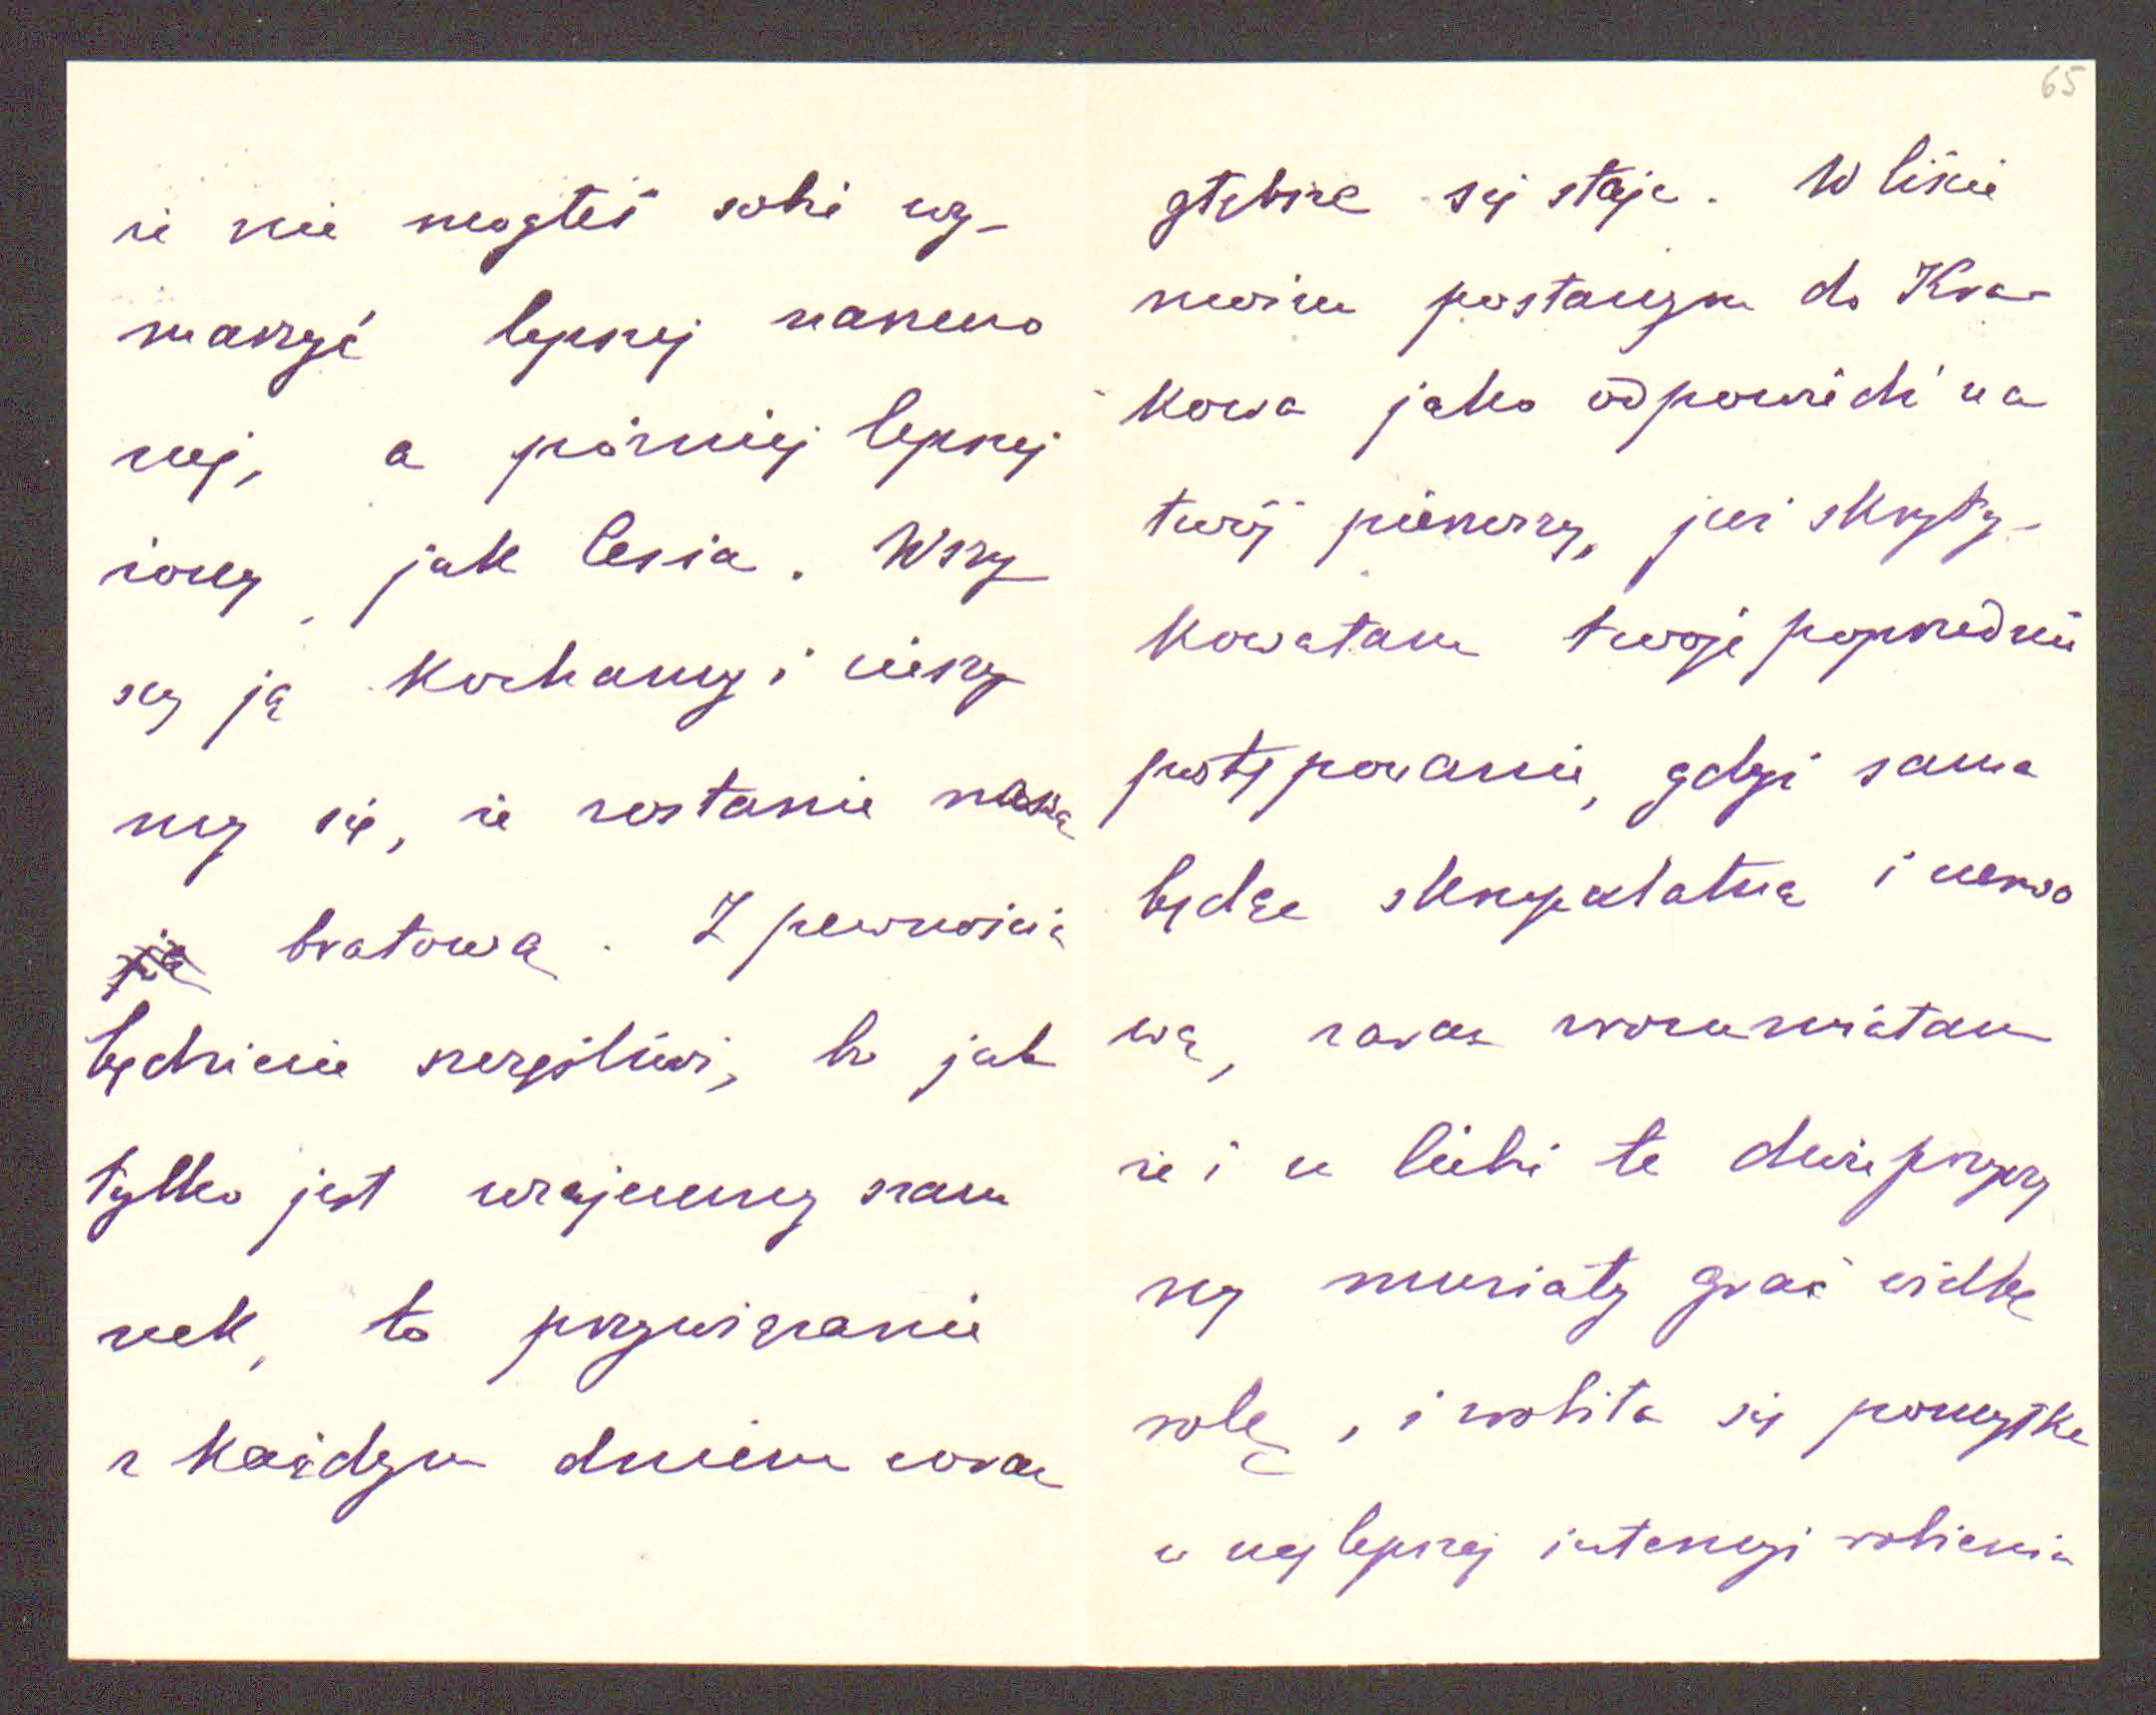 że nie mogłeś sobie wy-
marzyć lepszej narzeczo
nej, a później lepszej
żony, jak Lesia. Wszy
scy ją kochamy i cieszy
my się, że zostanie naszą
bratową. Z pewnością
będziecie szczęśliwi, bo jak
tylko jest wzajemny szacu
nek, to przywiązanie
z każdym dniem coraz
65
głębsze się staje. W liście
moim posłanym do Kra-
kowa jako odpowiedź na
twój pierwszy, już skryty-
kowałam twoje poprzednie
postępowanie, gdyż sama
będąc skrupulatną i nerwo
wą, zaraz zrozumiałam
że i u Ciebie te dwie przyczy
ny musiały grać wielką
rolę, i zrobiła się pomyłka
w najlepszej intencyi robienia